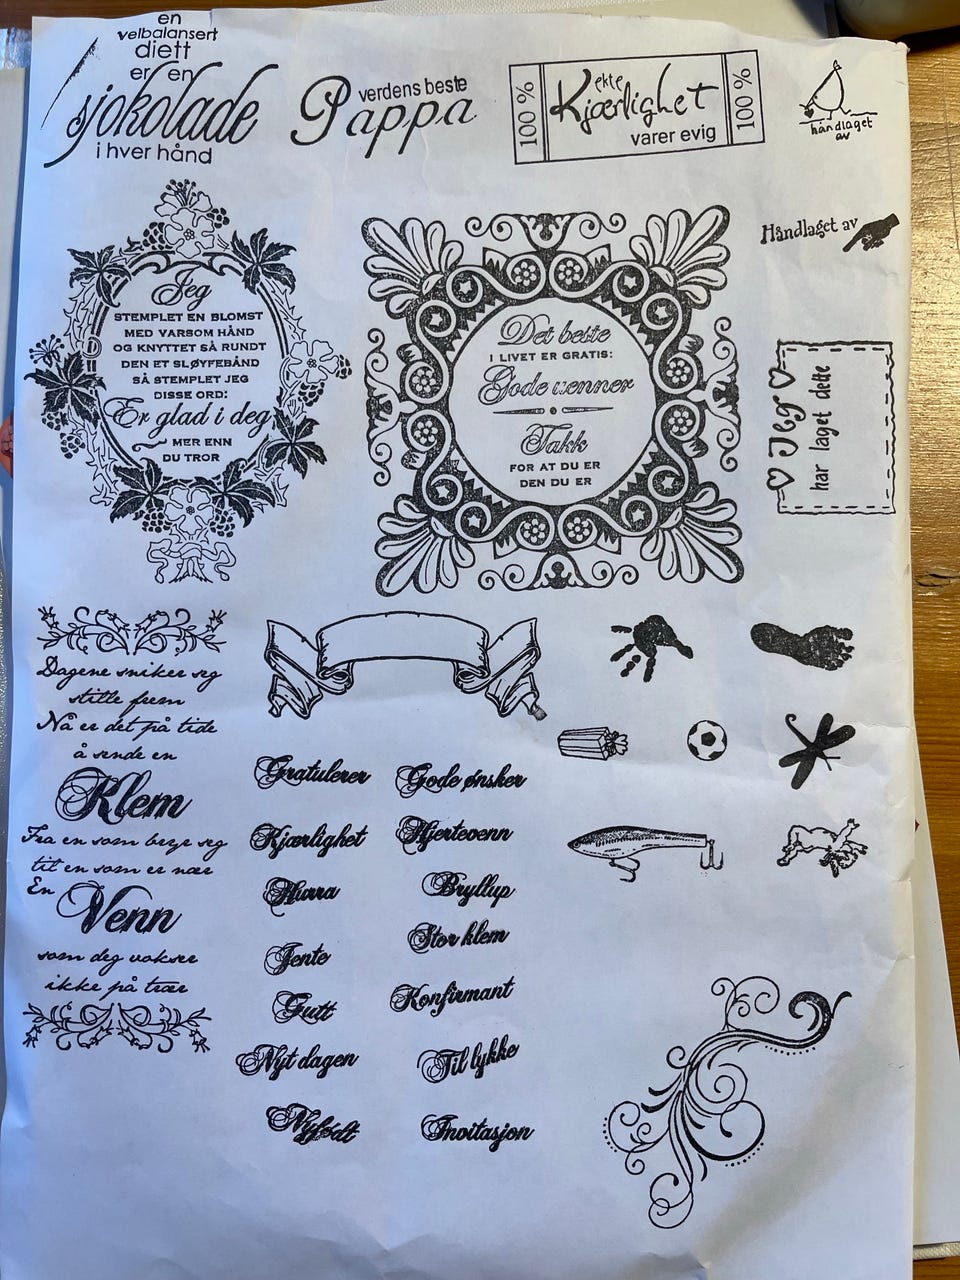 en
velbalansert
diett
er en
sjokolade
i hver hånd
verdens beste
Pappa
100 %
ekte
Kjærlighet
varer evig
100 %
håndlaget
av
Håndlaget av
Jeg
STEMPLET EN BLOMST
MED VARSOM HÅND
OG KNYTTET SÅ RUNDT
DEN ET SLØYFEBÅND
SÅ STEMPLET JEG
DISSE ORD:
Er glad i deg
MER ENN
DU TROR
Det beste
I LIVET ER GRATIS:
Gode venner
Takk
FOR AT DU ER
DEN DU ER
Jeg
har laget dette
Dagene sniker seg
stille frem
Nå er det på tide
å sende en
Klem
Fra en som bryr seg
til en som er nær
En
Venn
som deg vokser
ikke på trær
Gratulerer
Kjærlighet
Hurra
Jente
Gutt
Nyt dagen
Nyfødt
Gode ønsker
Hjertevenn
Bryllup
Stor klem
Konfirmant
Til lykke
Invitasjon